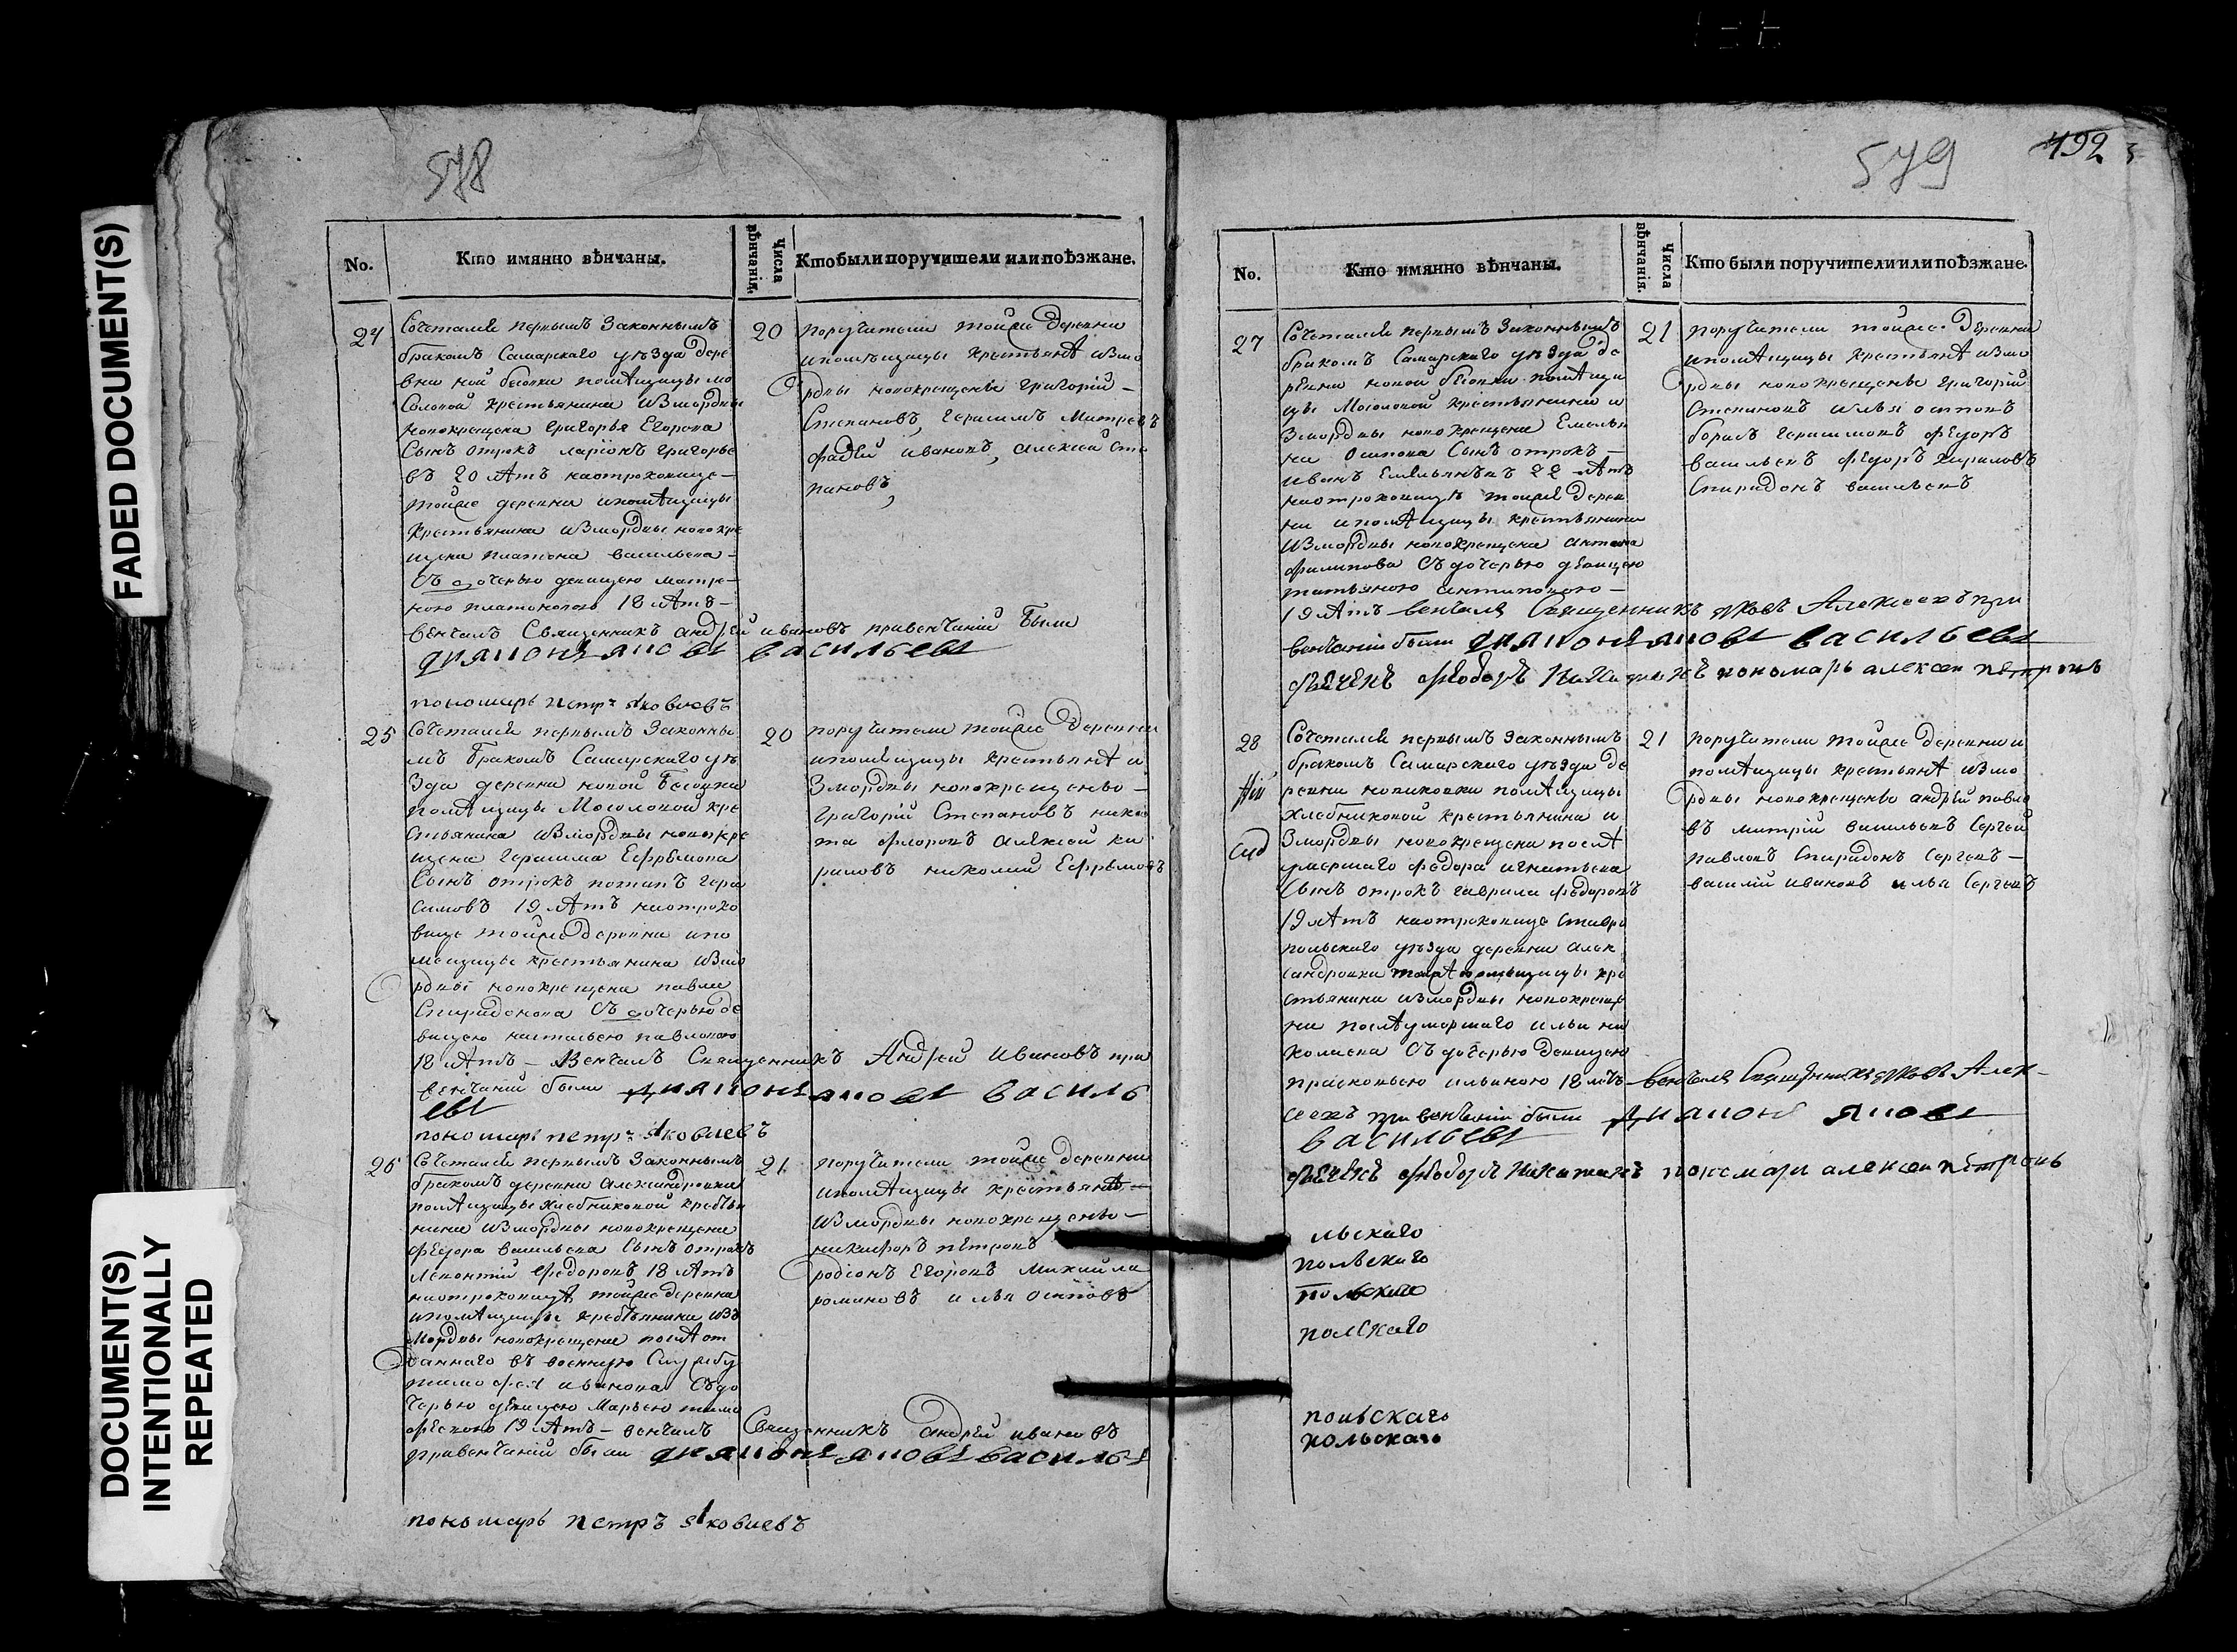 FADED DOCUMENT(S)
DOCUMENT(S)
INTENTIONALLY
REPEATED
578
No.
Кто имянно вѣнчаны.
Числа вѣнчанія.
Кто были поручители или поѣзжане.
24
Сочетался первымъ Законнымъ
бракомъ Самарскаго уѣзда дере
вни ной бесовки помѣщицы мо
Соловой крестьянина Измордвы
новокрещена Григорья Егорова
Сынъ отрокъ ларіонъ григорье
въ 20 лѣтъ наотроковице
тойже деревни ипомѣщицы
Крестьянина Измордвы новокре
щена платона васильева
Съ дочерью девицею матре
ною платоновою 18 лѣтъ
венчалъ Священникъ андрей ивановъ привенчаніи были
дияпонъ яновъ васильевъ
пономарь петръ яковлевъ
20
поручители тойже деревни
ипомѣщицы крестьянѣ измо
рдвы новокрещеные григорій
Степановъ, герасимъ Митревъ
фадѣй ивановъ, алексей сте
пановъ,
25
Сочетался первымъ Законны
мъ бракомъ Самарского уѣ
зда деревни новой Бесовки
помѣщицы Мосоловой кре
стьянина измордвы новокре
щена герасима Ефремова
Сынъ отрокъ потапъ гера
симовъ 19 лѣтъ наотроко
вице тойже деревни ипо
мещицы крестьянина Измо
рдвы новокрещена павла
Спиридонова Съ дочерью де
вицею настасьею павловою
18 лѣтъ венчалъ Священникъ Андрей Ивановъ при
венчаніи были дияпонъ яновъ василь
евъ
пономарь петръ яковлевъ
20
поручители тойже деревни
ипомѣщицы крестьянѣ и
Змордвы новокрещеные
григорій Степановъ ники
та флоровъ алексей ки
риловъ николай Ефремовъ
26
Сочетался первымъ Законнымъ
бракомъ деревни александровки
помѣщицы хлебниковой крестья
нина измордвы новокрещена
Федора васильева Сынъ отрокъ
леонтій Федоровъ 18 лѣтъ
наотроковицѣ тойже деревни
ипомѣщицы крестьянина изъ
мордвы новокрещена послѣ от
даннаго въ военную Службу
тимофея иванова Съ до
черью девицею Марьею тимо
феевою 19 лѣтъ венчалъ Священникъ андрей ивановъ
привенчаніи были дияпонъ яновъ василье
пономарь петръ яковлевъ
21
поручители тойже деревни
ипомѣщицы крестьянѣ
измордвы новокрещеные
никифоръ петровъ
родіонъ Егоровъ михайла
романовъ илья осиповъ
579
492
No.
Кто имянно вѣнчаны.
Числа вѣнчанія.
Кто были поручители или поѣзжане.
27
Сочетался первымъ Законнымъ
бракомъ Самарскаго уѣзда де
ревни новой бесовки помѣщи
цы Мосоловой крестьянина и
Змордвы новокрещена Емелья
на осипова Сынъ отрокъ
иванъ Емельяновъ 22 лѣтъ
наотроковицѣ тойже дерев
ни ипомѣщицы крестьянина
измордвы новокрещена антипа
филипова Съ дочерью девицею
татьяною антиповою
19 лѣтъ венчалъ Священникъ яковъ Алексеевъ при
венчаніи были дияпонъ яновъ васильевъ
федоръ никитинъ пономарь алексеи петровъ
21
поручители тойже деревни
ипомѣщицы крестьянѣ измо
рдвы новокрещеные григорій
Степановъ илья осиповъ
борисъ герасимовъ федоръ
васильевъ федоръ кириловъ
Спиридонъ васильевъ
28
Сочетался первымъ Законнымъ
бракомъ Самарскаго уѣзда де
ревни новиковки помѣщицы
хлебниковой крестьянина и
Змордвы новокрещена послѣ
умершаго федора игнатьева
Сынъ отрокъ гаврила федоровъ
19 лѣтъ наотроковице ставро
польскаго уѣзда деревни алек
сандровки помѣщицы кре
стьянина измордвы новокреще
на послѣ умершаго ильи ни
колаева Съ дочерью девицею
прасковьею ильиною 18 лѣтъ венчалъ Священникъ яковъ Алек
сеевъ при венчаніи были дияпонъ яновъ
васильевъ
федоръ никитинъ пономарь алексеи петровъ
21
поручители тойже деревни и
помѣщицы крестьянѣ измо
рдвы новокрещеные андрей павло
въ митрій васильевъ Сергей
павловъ Спиридонъ Сергеевъ
василій ивановъ илья Сергеевъ
льскаго
польскаго
польскаго
полскаго
польскаго
польскаго